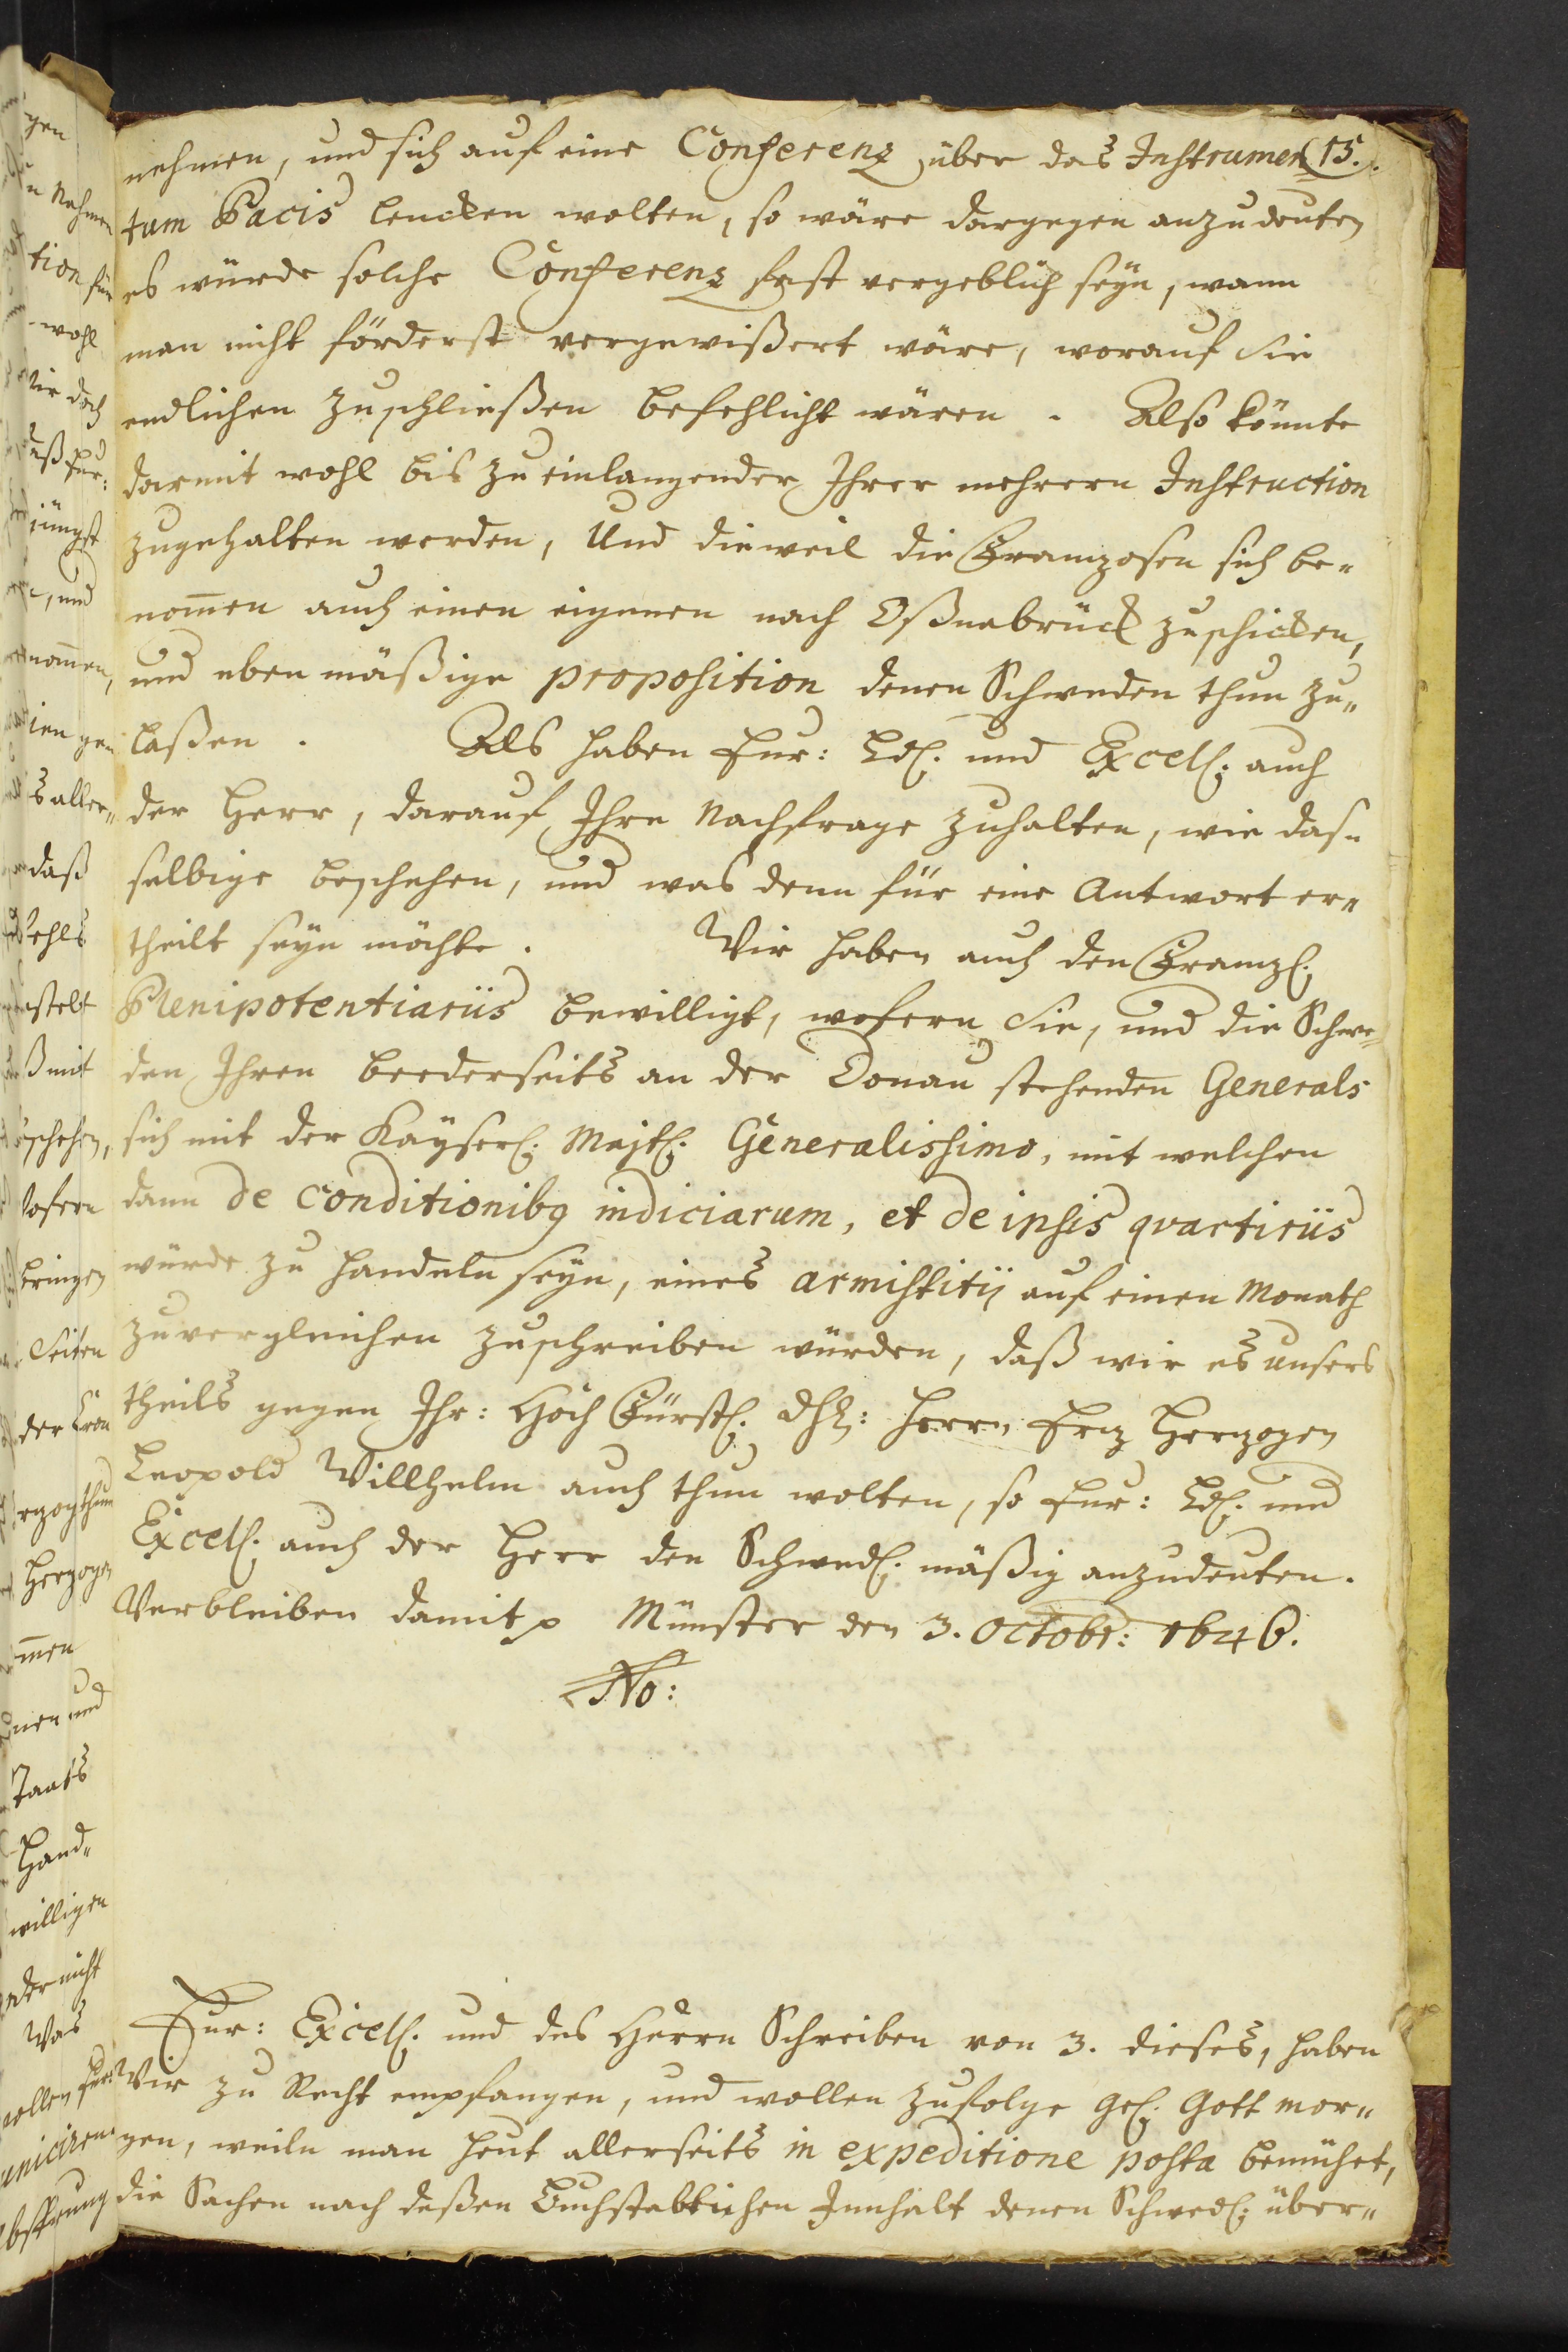 nehmen, und sich auf eine Conferenz über das Instrumen 15.
tum Pacis lencken wolten, so wäre dargegen anzudeuten
es würde solche Conferenz fast vergeblich seyn, wann
man nicht förderst vergewißert wäre, worauf sie
endlichen zuschließen befehlicht wären. Also könnte
darmit wohl bis zu einlangender Ihrer mehrern Instruction
zugehalten werden, Und dieweil die Franzosen sich be„
nom̄en auch einen eigenen nach Oßnabrück zuschicken,
und eben mäßige proposition denen Schweden thun zu„
laßen. Als haben Eur: Ld. und Excell. auch
der Herr, darauf Ihre Nachfrage zuhalten, wie das„
selbige beschehen, und was denn für eine Antwort er„
theilt seyn möchte. Wir haben auch den Franz.
Plenipotentiariis bewilligt, wofern sie, und die Schwe„
den Ihren beederseits an der Donau stehenden Generals
sich mit der Kayserl. Majt. Generalissimo, mit welchen
dann de conditionibꝰ indiciarum, et de ipsis qvartiriis
würde zu handeln seyn, eines armistitij auf einen Monath
zuvergleichen zuschreiben würden, daß wir es unsers
theils gegen Ihr: Hoch Fürstl. dhl: Herrn Erz Herzogen
Leopold Willhelm auch thun wolten, so Eur: Ld. und
Excell. auch der Herr den Schwed. mäßig anzudeuten.
Verbleiben damit p Münster den 3. Octobr: 1646.
No:
Eur: Excell. und des Herrn Schreiben von 3. dieses, haben
Wir zu Recht empfangen, und wollen zufolge gel. Gott mor„
gen, weiln man heut allerseits in expeditione posta bemühet,
die Sachen nach deßen Buchstablichen Innhalt denen Schwed. über„